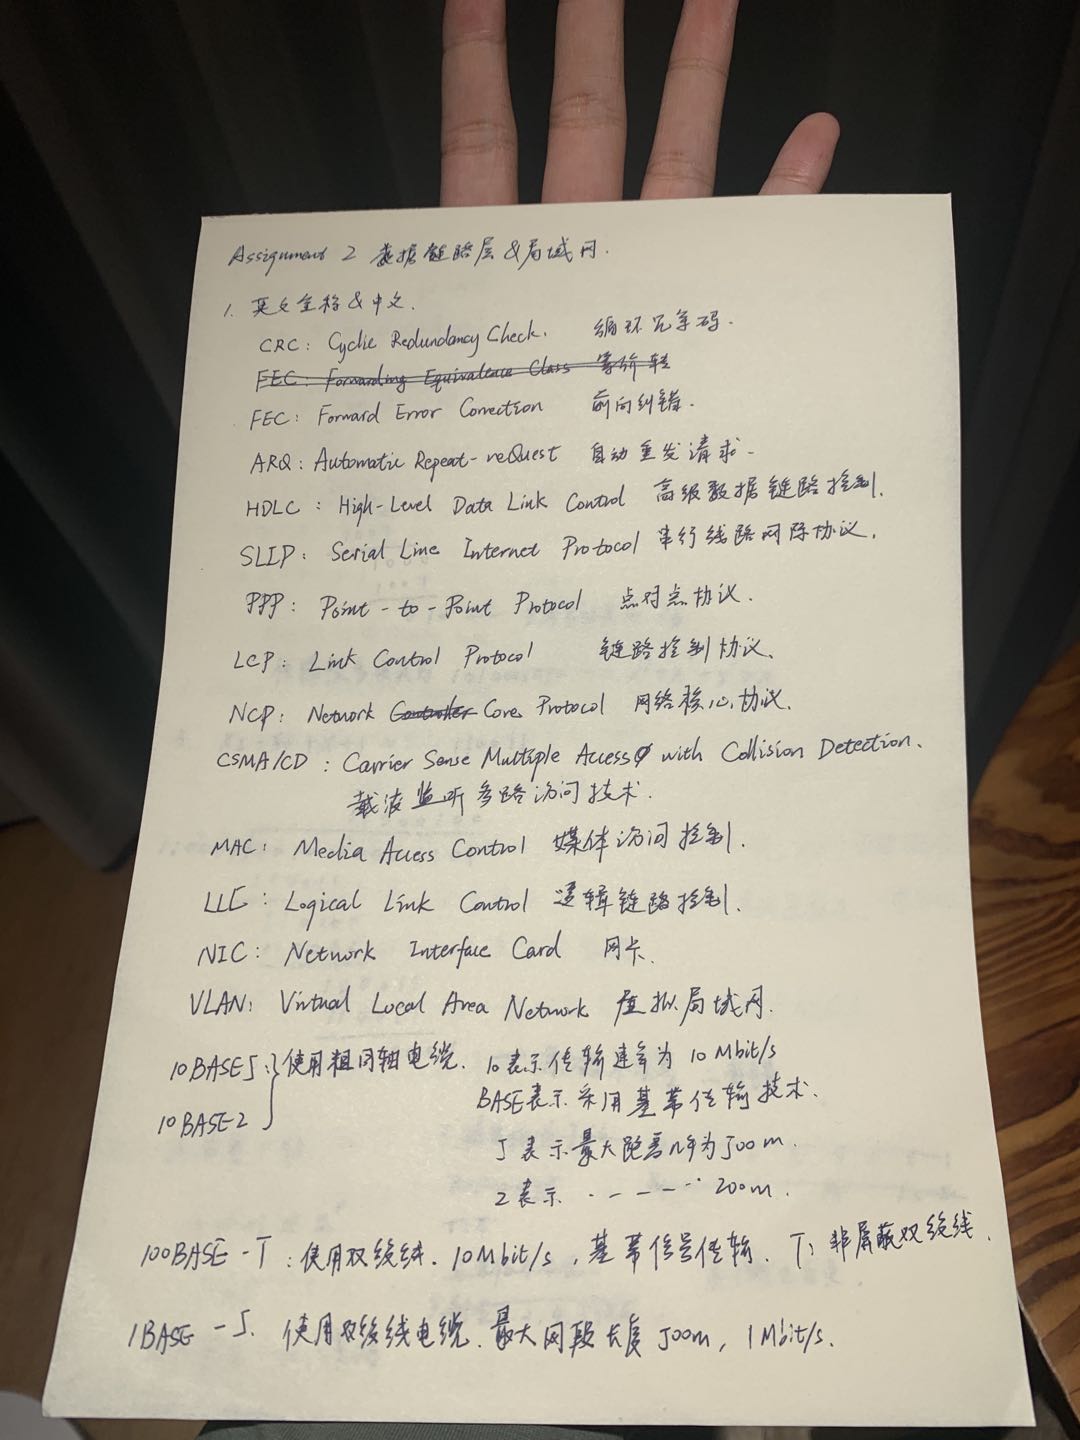 Assignment 2 数据链路层&局域网.
1. 英文全称&中文.
CRC: Cyclic Redundancy Check. 循环冗余码.
FEC: Forwarding Equivalence Class 等价转
FEC: Forward Error Correction 前向纠错.
ARQ: Automatic Repeat-reQuest 自动重发请求.
HDLC: High-Level Data Link Control 高级数据链路控制.
SLIP: Serial Line Internet Protocol 串行线路网际协议.
PPP: Point-to-Point Protocol 点对点协议.
LCP: Link Control Protocol 链路控制协议.
NCP: Network Controller Core Protocol 网络核心协议.
CSMA/CD: Carrier Sense Multiple Access with Collision Detection.
载波监听多路访问技术.
MAC: Media Access Control 媒体访问控制.
LLC: Logical Link Control 逻辑链路控制.
NIC: Network Interface Card 网卡.
VLAN: Virtual Local Area Network 虚拟局域网.
10BASE5: 使用粗同轴电缆. 10表示传输速率为 10 Mbit/s
10BASE2 BASE表示采用基带传输技术.
5 表示最大距离为500m.
2 表示 ------ 200m.
100BASE-T: 使用双绞线. 10Mbit/s, 基带信号传输. T: 非屏蔽双绞线.
1BASE-5. 使用双绞线电缆. 最大网段长度500m, 1Mbit/s.